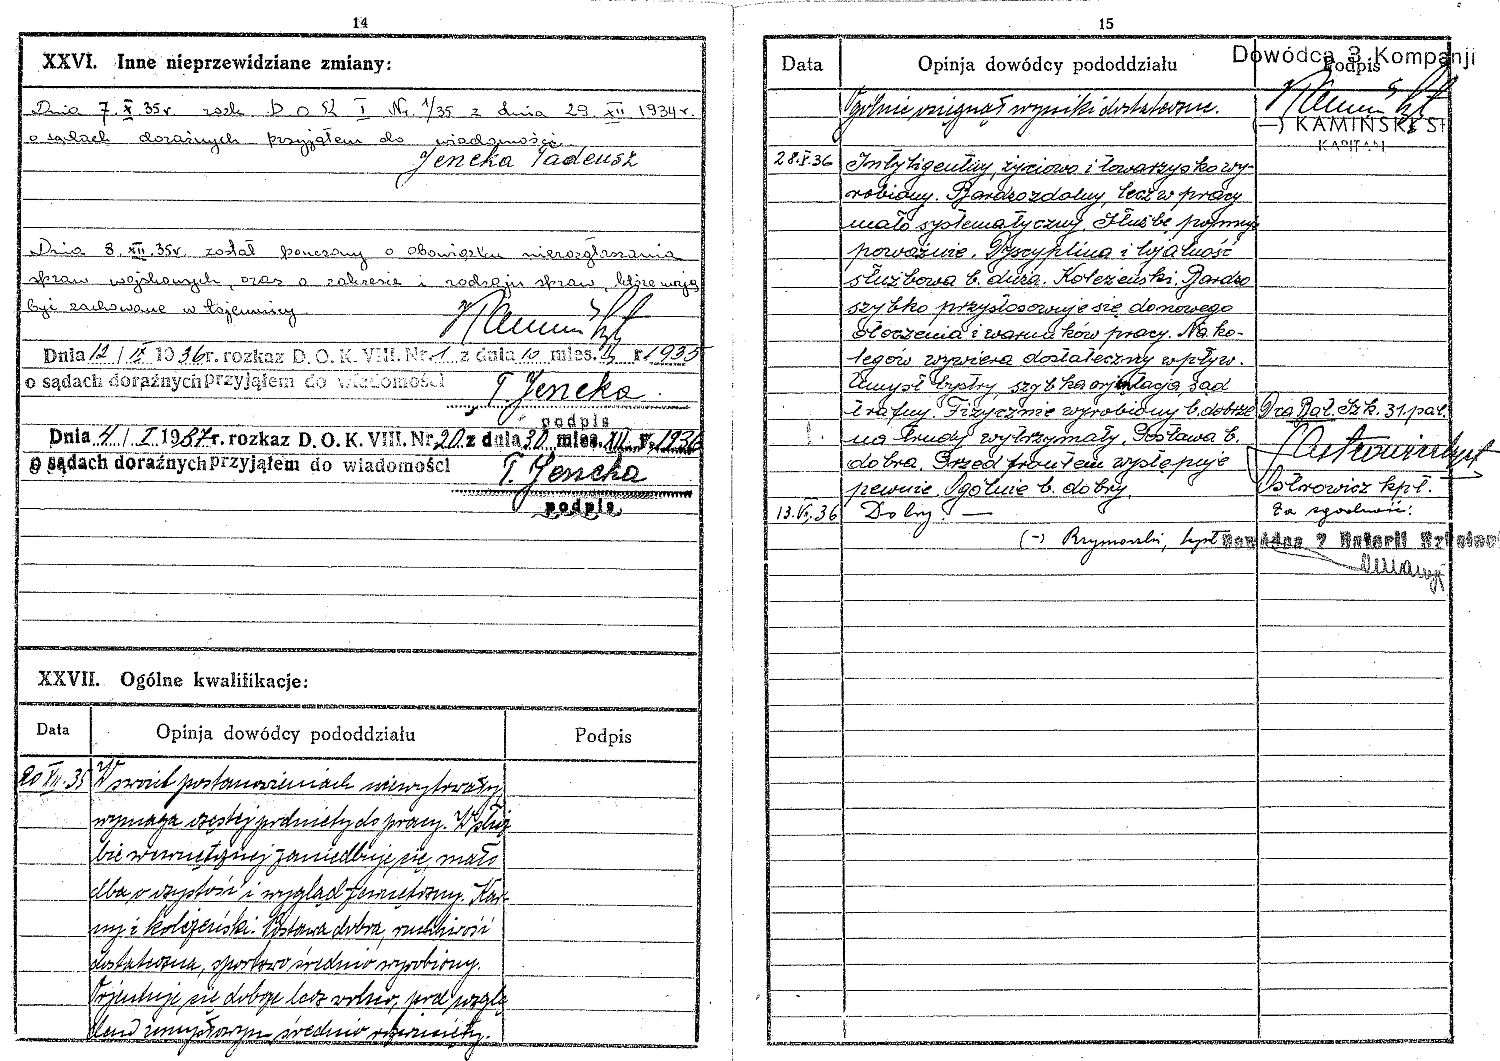 14
XXVI. Inne nieprzewidziane zmiany:
Dnia 7.X.35r rozk D O K I Nr. 1/35 z dnia 29 XII 1934r.
o sądach doraźnych przyjąłem do wiadomości
Jencka Tadeusz
Dnia 8.XII.35r. został pouczony o obowiązku nierozgłaszania
spraw wojskowych, oraz o zakresie i rodzaju spraw, które mają
być zachowane w tajemnicy
Kamiński kpt
Dnia 12/IX 1936r. rozkaz D. O. K. VIII. Nr. 1 z dnia 10 mies. r. 1935
o sądach doraźnych przyjąłem do wiadomości
T. Jencka
podpis
Dnia 4/I 1937r. rozkaz D. O. K. VIII. Nr 20 z dnia 30 mies. XII r. 1936
o sądach doraźnych przyjąłem do wiadomości
T. Jencka
podpis
XXVII. Ogólne kwalifikacje:
Data Opinja dowódcy pododdziału Podpis
20 XII.35 W swoich postanowieniach niewytrwały,
wymaga częstej podniety do pracy. W służ
bie wewnętrznej zaniedbuje się, mało
dba o czystość i wygląd zewnętrzny. Kar-
ny i koleżeński. Postawa dobra, ruchliwość
dostateczna, sportowo średnio wyrobiony.
Orjentuje się dobrze lecz wolno, pod wzglę
dem umysłowym średnio rozwinięty.
15
Data Opinja dowódcy pododdziału Podpis
Dowódca 3 Kompanji
Ogólnie osiągnął wyniki dostateczne.
Kamiński kpt
(—) KAMIŃSKI ST
KAPITAN
28.X.36 Inteligentny, życiowo i towarzysko wy-
robiony. Bardzo zdolny, lecz w pracy
mało systematyczny. Służbę pojmuje
poważnie. Dyscyplina i lojalność
służbowa b. duża. Koleżeński. Bardzo
szybko przystosowuje się do nowego
otoczenia i warunków pracy. Na ko-
legów wywiera dostateczny wpływ.
Umysł bystry, szybka orjentacja, sąd
trafny. Fizycznie wyrobiony b. dobrze Dca Bat. Szk. 31. pal.
na trudy wytrzymały. Postawa b.
dobra. Przed frontem występuje
pewnie. Ogólnie b. dobry. Ostrowicz kpt.
13.VI.36 Dobry. — Za zgodność:
(-) Rzymowski, kpt Dowódca 2 Baterii Szkolnej